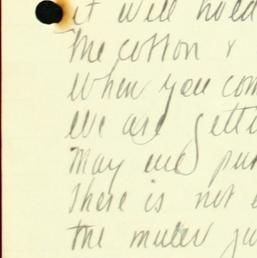 it will hold
the cotton &
When you com
We are getti
may we pur
There is not
the mules ju